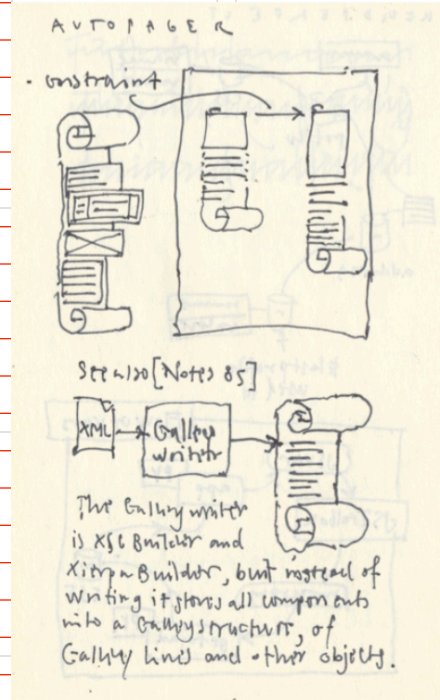 AUTOPAGER
- constraint
See also [Notes 85]
XML
Galley
writer
The Galley writer
is XSL Builder and
Builder, but instead of
writing it stores all components
into a Galley structure, of
Galley lines and other objects.